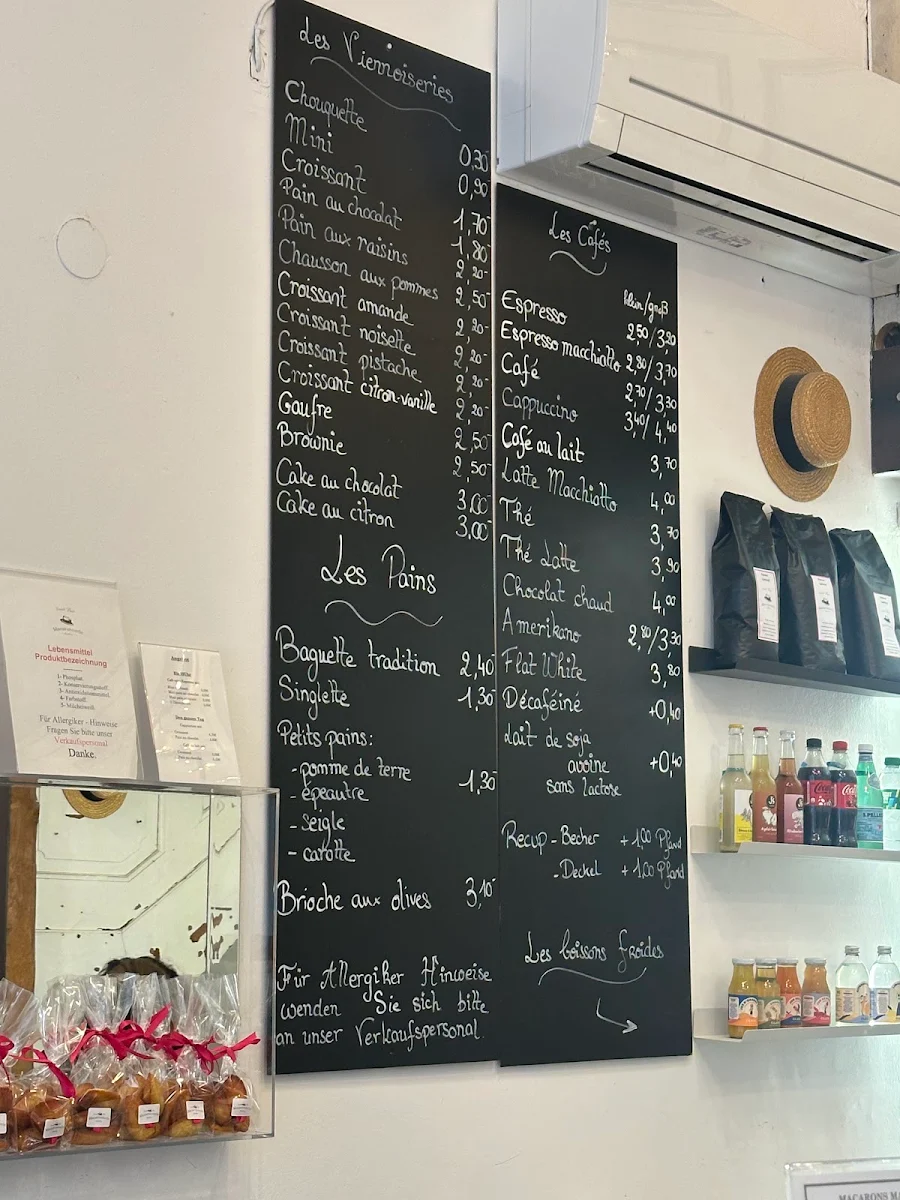 Les Viennoiseries
Chouquette 0,30
Mini 0,90
Croissant 1,70
Pain au chocolat 1,80
Pain aux raisins 2,20
Chausson aux pommes 2,50
Croissant amande 2,20
Croissant noisette 2,20
Croissant pistache 2,20
Croissant citron-vanille 2,20
Gaufre 2,50
Brownie 2,50
Cake au chocolat 3,00
Cake au citron 3,00
Les Pains
Baguette tradition 2,40
Singlette 1,30
Petits pains:
- pomme de terre 1,30
- épeautre
- seigle
- carotte
Brioche aux olives 3,10
Für Allergiker Hinweise
wenden Sie sich bitte
an unser Verkaufspersonal.
Les Cafés
klein/groß
Espresso 2,50/3,20
Espresso macchiatto 2,80/3,70
Café 2,70/3,30
Cappuccino 3,40/4,40
Café au lait 3,70
Latte Macchiatto 4,00
Thé 3,70
Thé Latte 3,90
Chocolat chaud 4,00
Amerikano 2,80/3,30
Flat White 3,80
Décaféiné +0,40
Lait de soja
avoine +0,40
sans lactose
Recup - Becher + 1,00 Pfand
- Deckel + 1,00 Pfand
Les boissons froides
Lebensmittel
Produktbezeichnung
1- Phosphat
2- Konservierungsstoff
3- Antioxidationsmittel
4- Farbstoff
Für Allergiker - Hinweise
Fragen Sie bitte unser
Verkaufspersonal
Danke.
MACARONS